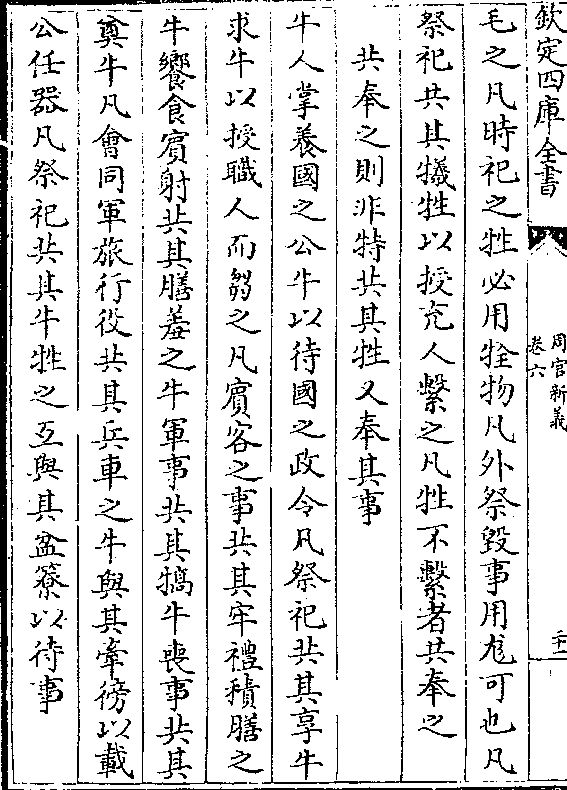 欽定四庫全書
周官新義
卷六
毛之凡時祀之牲必用牷物凡外祭毀事用尨可也凡
祭祀共其犧牲以授充人繫之凡牲不繫者共奉之
共奉之則非特共其牲又奉其事
牛人掌養國之公牛以待國之政令凡祭祀共其享牛
求牛以授職人而芻之凡賓客之事共其牢禮積膳之
牛饗食賓射共其膳羞之牛軍事共其犒牛喪事共其
奠牛凡會同軍旅行役共其兵車之牛與其牽徬以載
公任器凡祭祀共其牛牲之互與其盆簝以待事